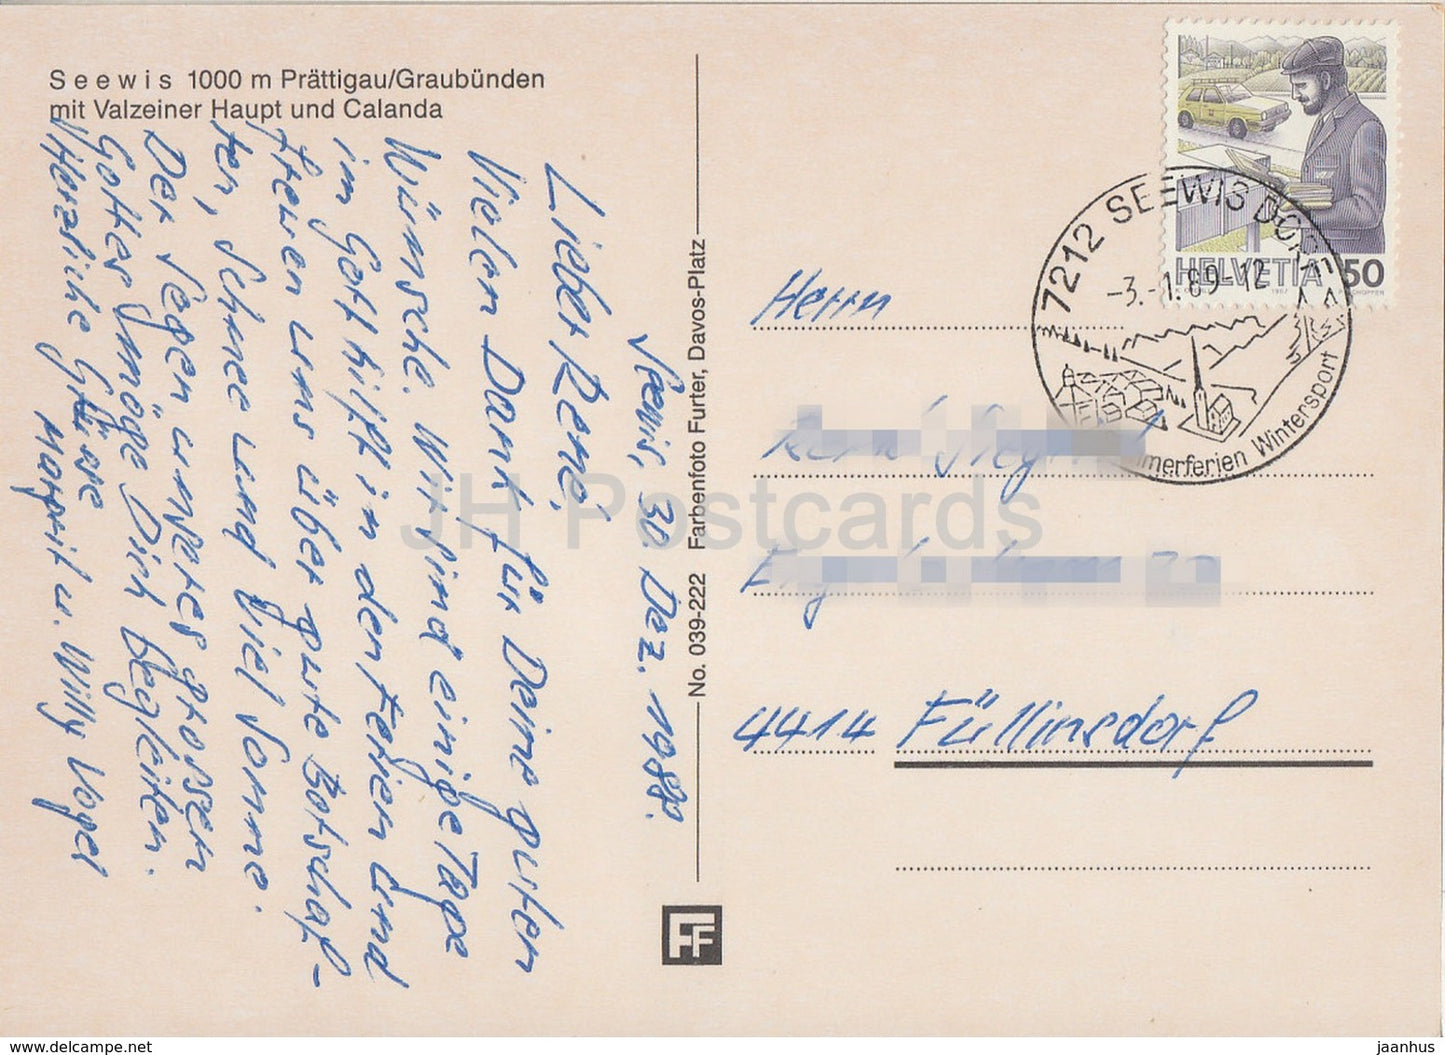 Seewis 1000 m Prättigau/Graubünden
mit Valzeiner Haupt und Calanda
Seewis, 30. Dez. 1988.
Lieber René,
Vielen Dank für Deine guten
Wünsche. Wir sind einige Tage
in Gott hilft in den Ferien und
freuen uns über gute Botschaf-
ten, Schnee und viel Sonne.
Der Segen unseres grossen
Gottes möge Dich begleiten.
Herzliche Grüsse
Margrit u. Willy Vogel
No. 039-222 Farbenfoto Furter, Davos-Platz
FF
HELVETIA 50
1987
7212 SEEWIS DORF
-3.-1.89-12
merferien Wintersport
Herrn
4414 Füllinsdorf
JH Postcards
www.hippostcard.com
jaanhus